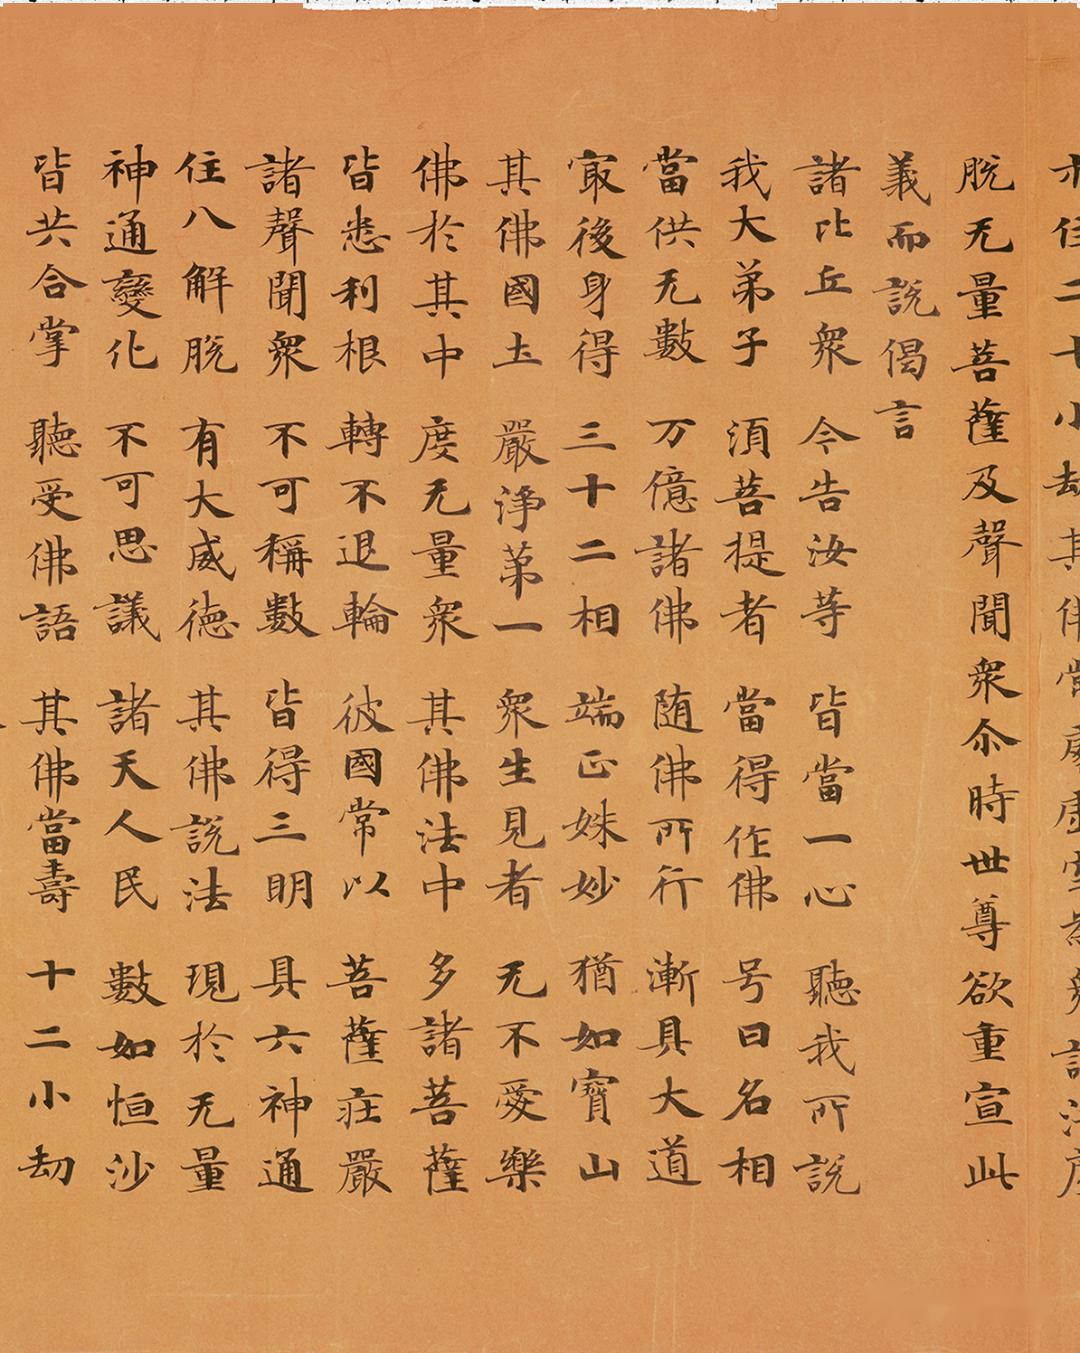 住二十小劫其佛常處虛空為眾說法度
脫无量菩薩及聲聞衆尒時世尊欲重宣此
義而說偈言
諸比丘衆 今告汝等 皆當一心 聽我所說
我大弟子 須菩提者 當得作佛 号曰名相
當供无數 万億諸佛 随佛所行 漸具大道
㝡後身得 三十二相 端正姝妙 猶如寶山
其佛國土 嚴淨第一 衆生見者 无不愛樂
佛於其中 度无量衆 其佛法中 多諸菩薩
皆悉利根 轉不退輪 彼國常以 菩薩莊嚴
諸聲聞衆 不可稱數 皆得三明 具六神通
住八解脫 有大威德 其佛說法 現於无量
神通變化 不可思議 諸天人民 數如恒沙
皆共合掌 聽受佛語 其佛當壽 十二小劫